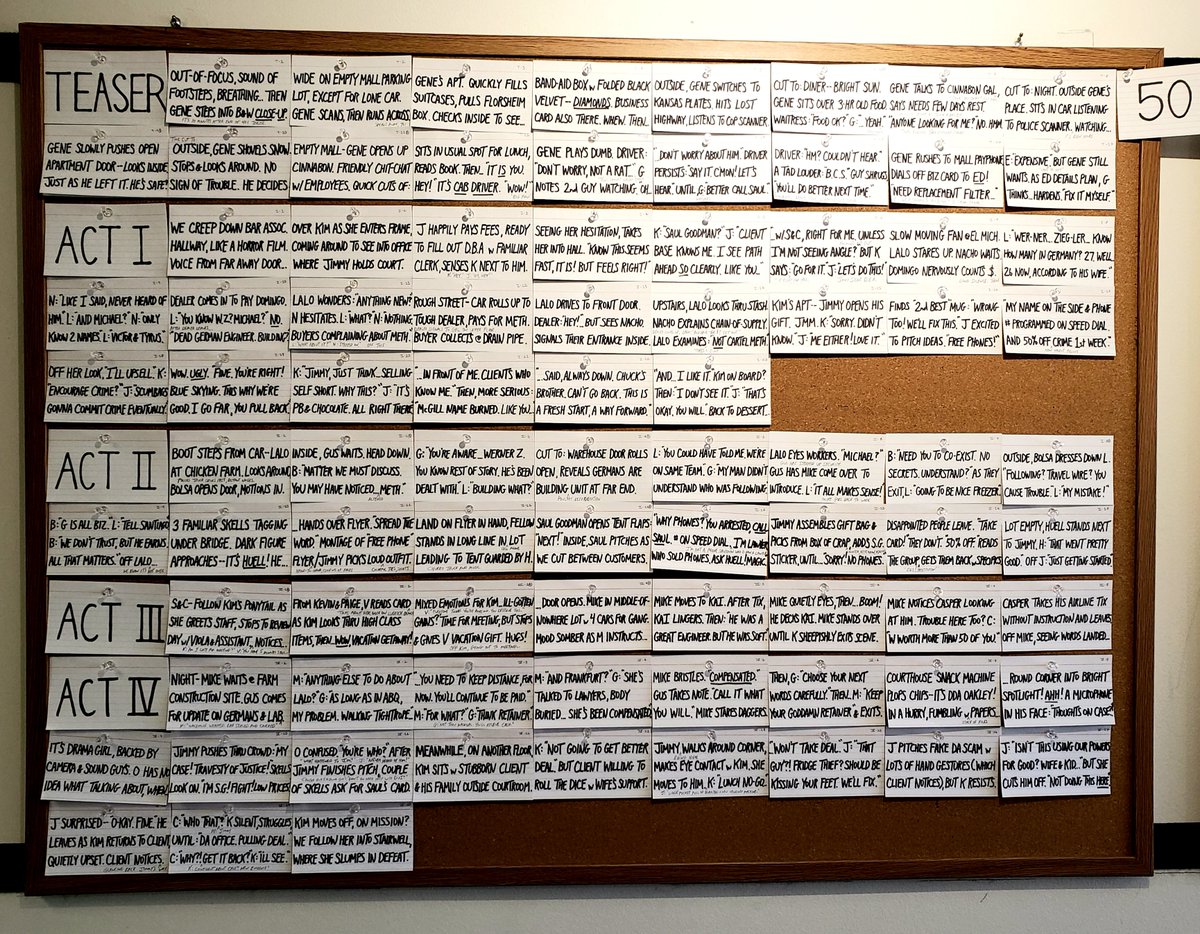 50
TEASER
OUT-OF-FOCUS, SOUND OF
FOOTSTEPS, BREATHING... THEN
GENE STEPS INTO B&W CLOSE-UP.
WIDE ON EMPTY MALL PARKING
LOT, EXCEPT FOR LONE CAR.
GENE SCANS, THEN RUNS ACROSS.
GENE'S APT. QUICKLY FILLS
SUITCASES, PULLS FLORSHEIM
BOX. CHECKS INSIDE TO SEE...
BAND-AID BOX w FOLDED BLACK
VELVET-- DIAMONDS. BUSINESS
CARD ALSO THERE. WHEW. THEN.
OUTSIDE, GENE SWITCHES TO
KANSAS PLATES. HITS LOST
HIGHWAY, LISTENS TO COP SCANNER.
CUT TO: DINER- BRIGHT SUN.
GENE SITS OVER 3 HR OLD FOOD
WAITRESS: FOOD OK? G: "...YEAH."
GENE TALKS TO CINNABON GAL,
SAYS NEEDS FEW DAYS REST.
"ANYONE LOOKING FOR ME?" NO. HMM.
CUT TO: NIGHT. OUTSIDE GENE'S
PLACE. SITS IN CAR LISTENING
TO POLICE SCANNER. WATCHING...
GENE SLOWLY PUSHES OPEN
APARTMENT DOOR--LOOKS INSIDE
JUST AS HE LEFT IT. HE'S SAFE!
OUTSIDE, GENE SHOVELS SNOW.
STOPS & LOOKS AROUND. NO
SIGN OF TROUBLE. HE DECIDES
EMPTY MALL-GENE OPENS UP
CINNABON. FRIENDLY CHIT-CHAT
w/ EMPLOYEES, QUICK CUTS OF:
SITS IN USUAL SPOT FOR LUNCH,
READS BOOK. THEN. "IT IS YOU.
HEY!" IT'S CAB DRIVER. "WOW!"
GENE PLAYS DUMB. DRIVER:
"DON'T WORRY, NOT A RAT.." G
NOTES 2nd GUY WATCHING, "OH..
..DON'T WORRY ABOUT HIM." DRIVER
PERSISTS: "SAY IT. C'MON! LET'S
HEAR." UNTIL, G: BETTER CALL SAUL."
DRIVER: "HM? COULDN'T HEAR."
A TAD LOUDER: B.C.S." GUY SHRUGS
"YOU'LL DO BETTER NEXT TIME."
GENE RUSHES TO MALL PAYPHONE
DIALS OFF BIZ CARD TO ED!
NEED REPLACEMENT FILTER..."
E: EXPENSIVE," BUT GENE STILL
WANTS. AS ED DETAILS PLAN, G
THINKS... HARDENS. "FIX IT MYSELF."
ACT I
WE CREEP DOWN BAR ASSOC.
HALLWAY, LIKE A HORROR FILM.
VOICE FROM FAR AWAY DOOR...
OVER KIM AS SHE ENTERS FRAME,
COMING AROUND TO SEE INTO OFFICE
WHERE JIMMY HOLDS COURT.
J HAPPILY PAYS FEES, READY
TO FILL OUT D.B.A. w FAMILIAR
CLERK, SENSES K NEXT TO HIM.
SEEING HER HESITATION, TAKES
HER INTO HALL. "KNOW THIS SEEMS
FAST, IT IS! BUT FEELS RIGHT!
K: "SAUL GOODMAN?" J: "CLIENT
BASE KNOWS ME. I SEE PATH
AHEAD SO CLEARLY. LIKE YOU."
..w/S&C, RIGHT FOR ME, UNLESS
I'M NOT SEEING ANGLE?" BUT K
SAYS: "GO FOR IT." J: LET'S DO THIS!
SLOW MOVING FAN @ EL MICH.
LALO STAKES UP. NACHO WAITS,
DOMINGO NERVOUSLY COUNTS $.
L: "WER-NER... ZIEG-LER... KNOW
HOW MANY IN GERMANY? 27, WELL,
26 NOW, ACCORDING TO HIS WIFE."
N: "LIKE I SAID, NEVER HEARD OF
HIM." L: "AND MICHAEL?" N: ONLY
KNOW 2 NAMES." L: "VICTOR & TYRUS."
DEALER COMES IN TO PAY DOMINGO.
L: "YOU KNOW W.Z? MICHAEL?" NO.
"DEAD GERMAN ENGINEER. BUILDING?
LALO WONDERS: "ANYTHING NEW?
N HESITATES. L: "WHAT? N: "NOTHING,
BUYERS COMPLAINING ABOUT METH.
ROUGH STREET- CAR ROLLS UP TO
TOUGH DEALER, PAYS FOR METH.
BUYER COLLECTS @ DRAIN PIPE.
LALO DRIVES TO FRONT DOOR.
DEALER: "HEY!" BUT SEES NACHO.
SIGNALS THEIR ENTRANCE INSIDE.
UPSTAIRS, LALO LOOKS THRU STASH.
NACHO EXPLAINS CHAIN-OF-SUPPLY.
LALO EXAMINES: NOT CARTEL METH.
KIM'S APT-- JIMMY OPENS HIS
GIFT. JMM. K: "SORRY. DIDN'T
KNOW." J: "ME EITHER! LOVE IT."
FINDS "2nd BEST MUG-- "WRONG
TOO! WE'LL FIX THIS," J EXCITED
TO PITCH IDEAS, "FREE PHONES!"
MY NAME ON THE SIDE & PHONE
# PROGRAMMED ON SPEED DIAL
AND 50% OFF CRIME 1st WEEK."
OFF HER LOOK, "I'LL UPSELL." K:
"ENCOURAGE CRIME?" J: "SCUMBAGS
GONNA COMMIT CRIME EVENTUALLY.
WOW. UGLY. "FINE. YOU'RE RIGHT!
BLUE SKYING. THIS WHY WE'RE
GOOD. I GO FAR, YOU PULL BACK
K: "JIMMY, JUST THINK... SELLING
SELF SHORT. WHY THIS?" J: "IT'S
PB & CHOCOLATE. ALL RIGHT THERE
...IN FRONT OF ME. CLIENTS WHO
KNOW ME." THEN, MORE SERIOUS:
"McGILL NAME BURNED. LIKE YOU..
...SAID, ALWAYS DOWN. CHUCK'S
BROTHER. CAN'T GO BACK. THIS IS
A FRESH START, A WAY FORWARD."
"AND... I LIKE IT. KIM ON BOARD?
THEN: "I DON'T SEE IT." J: "THAT'S
OKAY. YOU WILL." BACK TO DESSERT.
ACT II
BOOT STEPS FROM CAR--LALO
AT CHICKEN FARM. LOOKS AROUND
BOLSA OPENS DOOR, MOTIONS IN.
INSIDE, GUS WAITS. HEAD DOWN.
B: "MATTER WE MUST DISCUSS.
YOU MAY HAVE NOTICED... METH."
G: "YOU'RE AWARE... WERNER Z.
YOU KNOW REST OF STORY. HE'S BEEN
DEALT WITH." L: "BUILDING WHAT?"
CUT TO: WAREHOUSE DOOR ROLLS
OPEN, REVEALS GERMANS ARE
BUILDING UNIT AT FAR END.
L: "YOU COULD HAVE TOLD ME WE'RE
ON SAME TEAM." G: "MY MAN DIDN'T
UNDERSTAND WHO WAS FOLLOWING.
LALO EYES WORKERS. "MICHAEL?"
GUS HAS MIKE COME OVER TO
INTRODUCE. L: "IT ALL MAKES SENSE!
B: "NEED YOU TO CO-EXIST. NO
SECRETS. UNDERSTAND?" AS THEY
EXIT, L: "GOING TO BE NICE FREEZER."
OUTSIDE, BOLSA DRESSES DOWN L.
"FOLLOWING? TRAVEL WIRE? YOU
CAUSE TROUBLE." L: "MY MISTAKE!"
B: "G IS ALL BIZ." L: "TELL SANTIAGO
B: "WE DON'T TRUST, BUT HE EARNS.
ALL THAT MATTERS." OFF LALO...
3 FAMILIAR SKELLS TAGGING
UNDER BRIDGE. DARK FIGURE
APPROACHES--IT'S HUELL! HE...
...HANDS OVER FLYER. "SPREAD THE
WORD." MONTAGE OF FREE PHONE
FLYER/JIMMY PICKS LOUD OUTFIT.
LAND ON FLYER IN HAND, FELLOW
STANDS IN LONG LINE IN LOT
LEADING TO TENT GUARDED BY H.
SAUL GOODMAN OPENS TENT FLAPS
"NEXT!" INSIDE, SAUL PITCHES AS
WE CUT BETWEEN CUSTOMERS.
"WHY PHONES? YOU ARRESTED, CALL
SAUL. # ON SPEED DIAL. I'M LAWYER
WHO SOLD PHONES, ASK HUELL! MAGIC.
JIMMY ASSEMBLES GIFT BAG &
PICKS FROM BOX OF CRAP, ADDS S.G.
STICKER, UNTIL... "SORRY! NO PHONES.
DISAPPOINTED PEOPLE LEAVE. "TAKE
CARD! THEY DON'T. 50% OFF" READS
THE GROUP, GETS THEM BACK w SPECIFICS
LOT EMPTY, HUELL STANDS NEXT
TO JIMMY, H: "THAT WENT PRETTY
GOOD." OFF J: "JUST GETTING STARTED
ACT III
S&C- FOLLOW KIM'S PONYTAIL AS
SHE GREETS STAFF, STOPS TO REVIEW
DAY w VIOLA & ASSISTANT, NOTICES..
FROM KEVIN & PAIGE, V READS CARD
AS KIM LOOKS THRU HIGH CLASS
ITEMS, THEN.. WOW, VACATION GETAWAY!
MIXED EMOTIONS FOR KIM... ILL-GOTTEN
GAINS? TIME FOR MEETING, BUT STOPS
& GIVES V VACATION GIFT. HUGS!
...DOOR OPENS. MIKE IN MIDDLE-OF-
NOWHERE LOT w 4 CARS FOR GANG.
MOOD SOMBER AS M INSTRUCTS...
MIKE MOVES TO KAI. AFTER TIX,
KAI LINGERS, THEN: HE WAS A
GREAT ENGINEER BUT HE WAS SOFT."
MIKE QUIETLY EYES, THEN... BOOM!
HE DECKS KAI. MIKE STANDS OVER
UNTIL K SHEEPISHLY EXITS SCENE.
MIKE NOTICES CASPER LOOKING
AT HIM. TROUBLE HERE TOO? C:
"W WORTH MORE THAN 50 OF YOU"
CASPER TAKES HIS AIRLINE TIX
WITHOUT INSTRUCTION AND LEAVES
OFF MIKE, SEEING WORDS LANDED...
ACT IV
NIGHT- MIKE WAITS @ FARM
CONSTRUCTION SITE. GUS COMES
FOR UPDATE ON GERMANS & LAB.
M: "ANYTHING ELSE TO DO ABOUT
LALO?" G: "AS LONG AS IN ABQ,
MY PROBLEM. WALKING TIGHTROPE..
...YOU NEED TO KEEP DISTANCE FOR
NOW. YOU'LL CONTINUE TO BE PAID."
M: "FOR WHAT?" G: "THINK RETAINER."
M: "AND FRANKFURT?" G: "SHE'S
TALKED TO LAWYERS, BODY
BURIED... SHE'S BEEN COMPENSATED
MIKE BRISTLES. "COMPENSATED."
GUS TAKES NOTE. "CALL IT WHAT
YOU WILL." MIKE STARES DAGGERS.
THEN, G: "CHOOSE YOUR NEXT
WORDS CAREFULLY." THEN. M: "KEEP
YOUR GODDAMN RETAINER" & EXITS.
COURTHOUSE "SNACK MACHINE
PLOPS CHIPS--IT'S DDA OAKLEY!
IN A HURRY, FUMBLING w PAPERS.
...ROUND CORNER INTO BRIGHT
SPOTLIGHT! AHH! A MICROPHONE
IN HIS FACE: "THOUGHTS ON CASE?
IT'S DRAMA GIRL, BACKED BY
CAMERA & SOUND GUYS. O HAS NO
IDEA WHAT TALKING ABOUT, WHEN..
JIMMY PUSHES THRU CROWD: "MY
CASE! TRAVESTY OF JUSTICE! SKELLS
LOOK ON. I'M S.G.! FIGHT! LOW PRICES
O CONFUSED "YOU'RE WHO?" AFTER
JIMMY FINISHES PITCH, COUPLE
OF SKELLS ASK FOR SAUL'S CARD.
MEANWHILE, ON ANOTHER FLOOR
KIM SITS w STUBBORN CLIENT
& HIS FAMILY OUTSIDE COURTROOM.
K: "NOT GOING TO GET BETTER
DEAL." BUT CLIENT WILLING TO
ROLL THE DICE w WIFES SUPPORT.
JIMMY, WALKS AROUND CORNER,
MAKES EYE CONTACT w KIM, SHE
MOVES TO HIM. K: "LUNCH NO-GO.
..."WON'T TAKE DEAL." J: "THAT
GUY?! FRIDGE THIEF? SHOULD BE
KISSING YOUR FEET. WE'LL FIX."
J PITCHES FAKE DA SCAM w
LOTS OF HAND GESTURES (WHICH
CLIENT NOTICES), BUT K RESISTS.
J: "ISN'T THIS USING OUR POWERS
FOR GOOD? WIFE & KID.." BUT SHE
CUTS HIM OFF. "NOT DOING THIS HERE"
J SURPRISED-- O-KAY. FINE. HE
LEAVES AS KIM RETURNS TO CLIENT
QUIETLY UPSET. CLIENT NOTICES.
C: "WHO THAT?" K SILENT, STRUGGLES
UNTIL: "DA OFFICE. PULLING DEAL."
C: "WHY?! GET IT BACK?" K: "I'LL SEE."
KIM MOVES OFF, ON MISSION?
WE FOLLOW HER INTO STAIRWELL,
WHERE SHE SLUMPS IN DEFEAT.